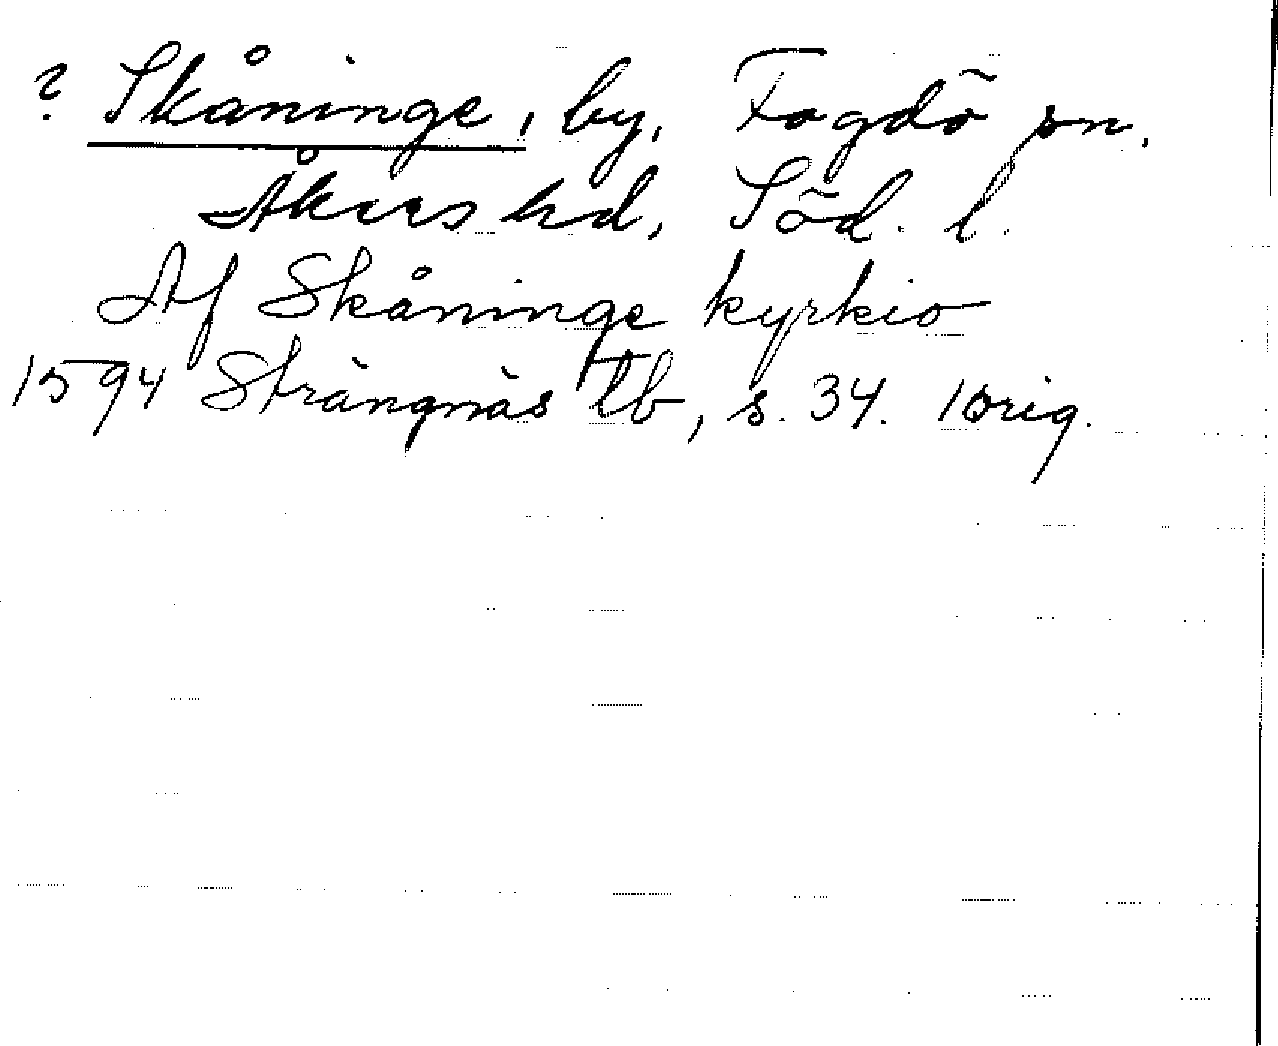 ? Skåninge, by, Fogdö sn.
Åkers hd, Söd. l.
Af Skåninge kyrkio
1594 Strängnäs tb, s. 34. 1 orig.